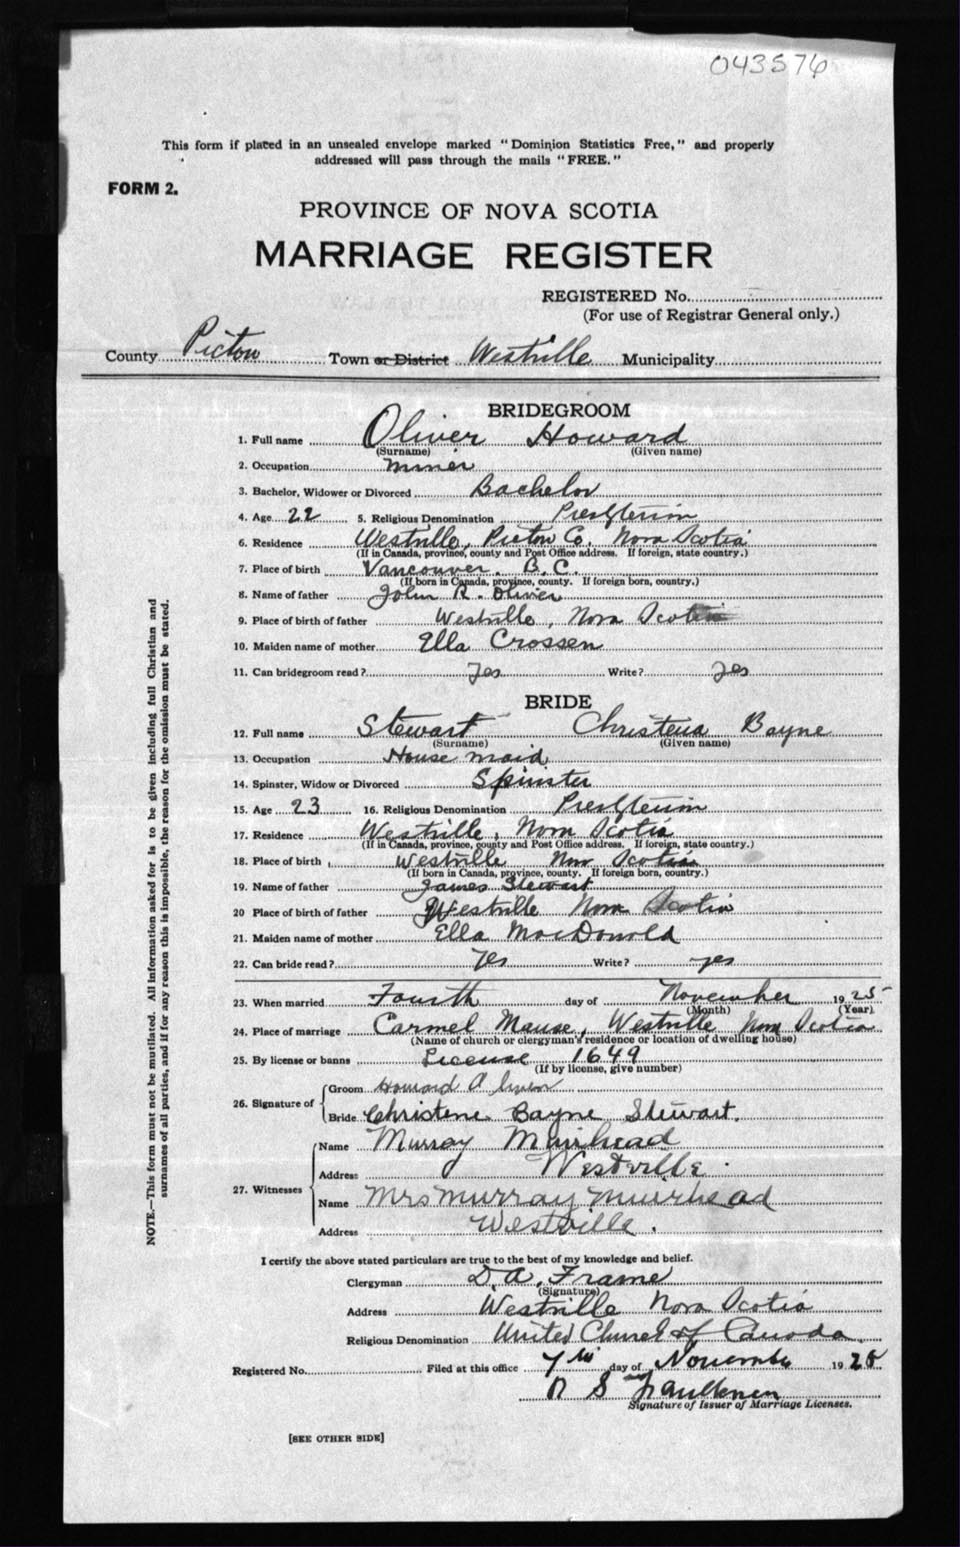 043576
This form if placed in an unsealed envelope marked "Dominion Statistics Free," and properly
addressed will pass through the mails "FREE."
FORM 2.
PROVINCE OF NOVA SCOTIA
MARRIAGE REGISTER
REGISTERED No.
(For use of Registrar General only.)
County Pictou Town or District Westville Municipality
BRIDEGROOM
1. Full name Oliver Howard
(Surname) (Given name)
2. Occupation miner
3. Bachelor, Widower or Divorced Bachelor
4. Age 22 5. Religious Denomination Presbyterian
6. Residence Westville, Pictou Co. Nova Scotia
(If in Canada, province, county and Post Office address. If foreign, state country.)
7. Place of birth Vancouver. B.C.
(If born in Canada, province, county. If foreign born, country.)
8. Name of father John R. Oliver
9. Place of birth of father Westville, Nova Scotia
10. Maiden name of mother Ella Crossen
11. Can bridegroom read? Yes Write? Yes
BRIDE
12. Full name Stewart Christena Bayne
(Surname) (Given name)
13. Occupation House maid
14. Spinster, Widow or Divorced Spinster
15. Age 23 16. Religious Denomination Presbyterian
17. Residence Westville, Nova Scotia
(If in Canada, province, county and Post Office address. If foreign, state country.)
18. Place of birth Westville Nova Scotia
(If born in Canada, province, county. If foreign born, country.)
19. Name of father James Stewart
20 Place of birth of father Westville Nova Scotia
21. Maiden name of mother Ella MacDonald
22. Can bride read? Yes Write? yes
23. When married Fourth day of November 1925
(Month) (Year)
24. Place of marriage Carmel Manse, Westville Nova Scotia
(Name of church or clergyman's residence or location of dwelling house)
25. By license or banns License 1649
(If by license, give number)
26. Signature of Groom Howard Oliver
Bride Christene Bayne Stewart.
27. Witnesses Name Murray Muirhead
Address Westville.
Name Mrs Murray Muirhead
Address Westville.
I certify the above stated particulars are true to the best of my knowledge and belief.
Clergyman D. A. Frame
(Signature)
Address Westville Nova Scotia
Religious Denomination United Church of Canada.
Registered No. Filed at this office 7th day of November 1925
Faulkner
Signature of Issuer of Marriage Licenses.
[SEE OTHER SIDE]
NOTE.—This form must not be mutilated. All information asked for is to be given including full Christian and
surnames of all parties, and if for any reason this is impossible, the reason for the omission must be stated.